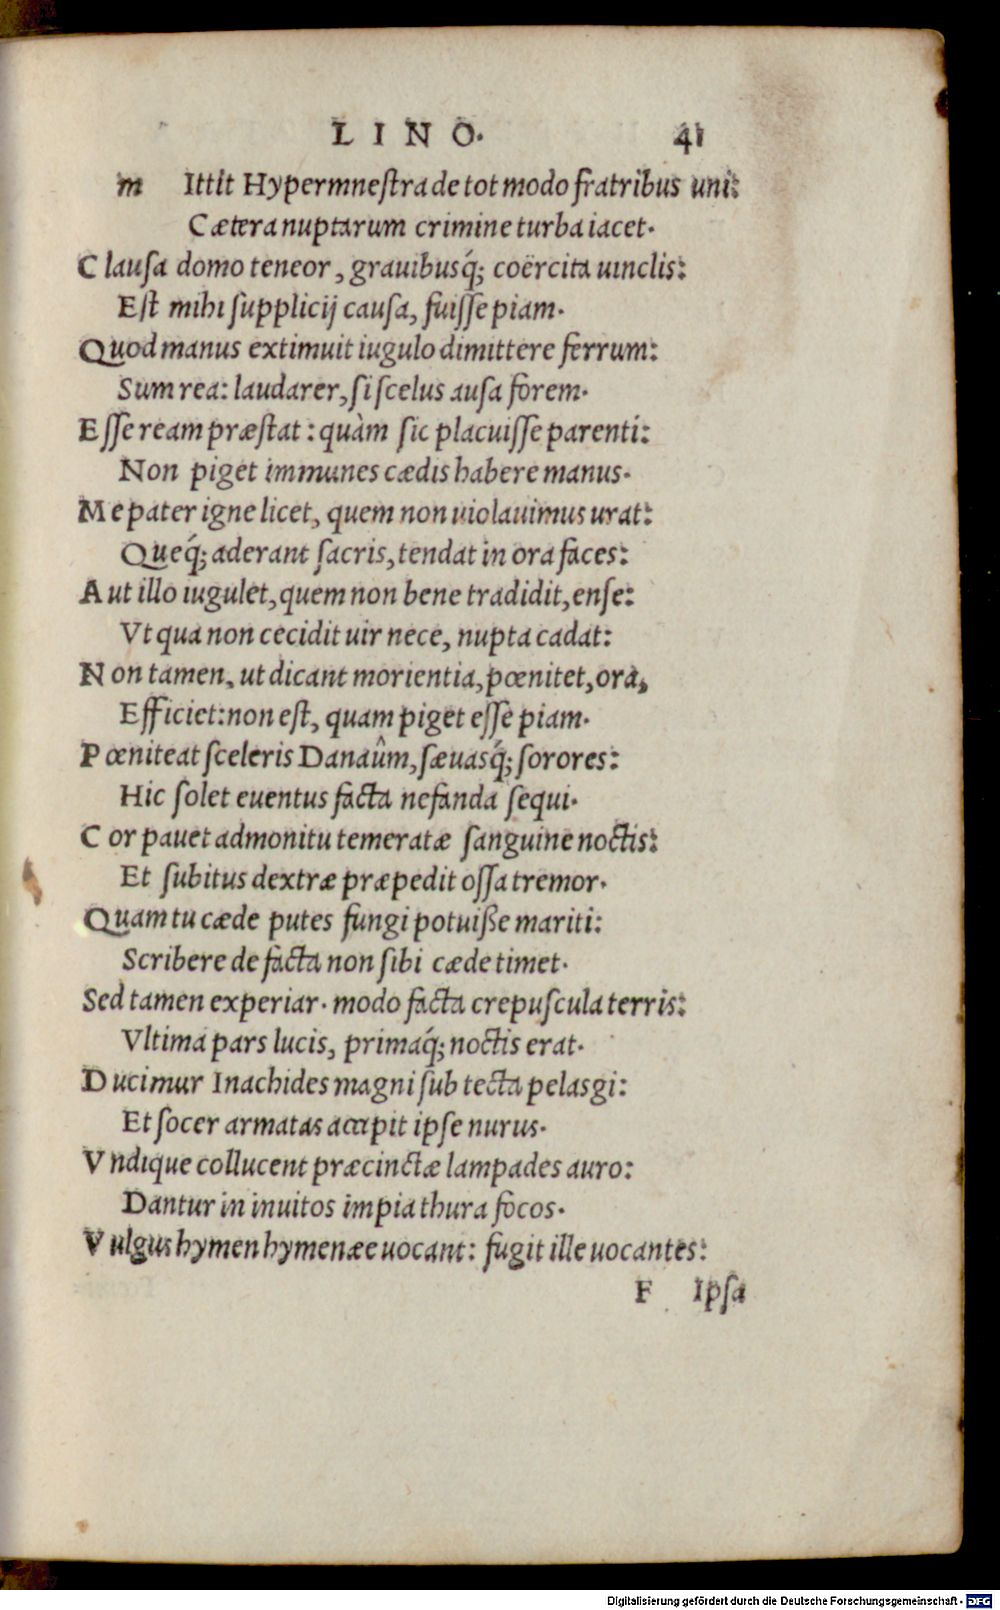 LINO. 41
m Ittit Hypermnestra de tot modo fratribus uni:
Cætera nuptarum crimine turba iacet.
Clausa domo teneor, grauibusq́; coërcita uinclis:
Est mihi supplicij causa, fuisse piam.
Quod manus extimuit iugulo dimittere ferrum:
Sum rea: laudarer, si scelus ausa forem.
Esse ream præstat: quàm sic placuisse parenti:
Non piget immunes cædis habere manus.
Me pater igne licet, quem non uiolauimus urat:
Queq́; aderant sacris, tendat in ora faces:
Aut illo iugulet, quem non bene tradidit, ense:
Vt qua non cecidit uir nece, nupta cadat:
Non tamen, ut dicant morientia, pœnitet, ora,
Efficiet: non est, quam piget esse piam.
Pœniteat sceleris Danaûm, sæuasq́; sorores:
Hic solet euentus facta nefanda sequi.
Cor pauet admonitu temeratæ sanguine noctis:
Et subitus dextræ præpedit ossa tremor.
Quam tu cæde putes fungi potuiße mariti:
Scribere de facta non sibi cæde timet.
Sed tamen experiar. modo facta crepuscula terris:
Vltima pars lucis, primaq́; noctis erat.
Ducimur Inachides magni sub tecta pelasgi:
Et socer armatas accipit ipse nurus.
Vndique collucent præcinctæ lampades auro:
Dantur in inuitos impia thura focos.
Vulgus hymen hymenæe uocant: fugit ille uocantes:
F Ipsa
Digitalisierung gefördert durch die Deutsche Forschungsgemeinschaft - DFG